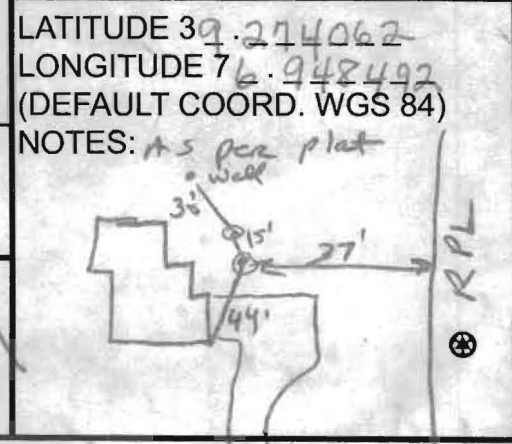 LATITUDE 39.274062
LONGITUDE 76.948492
(DEFAULT COORD. WGS 84)
NOTES: As per plat
well
38'
15'
27'
RPL
44'